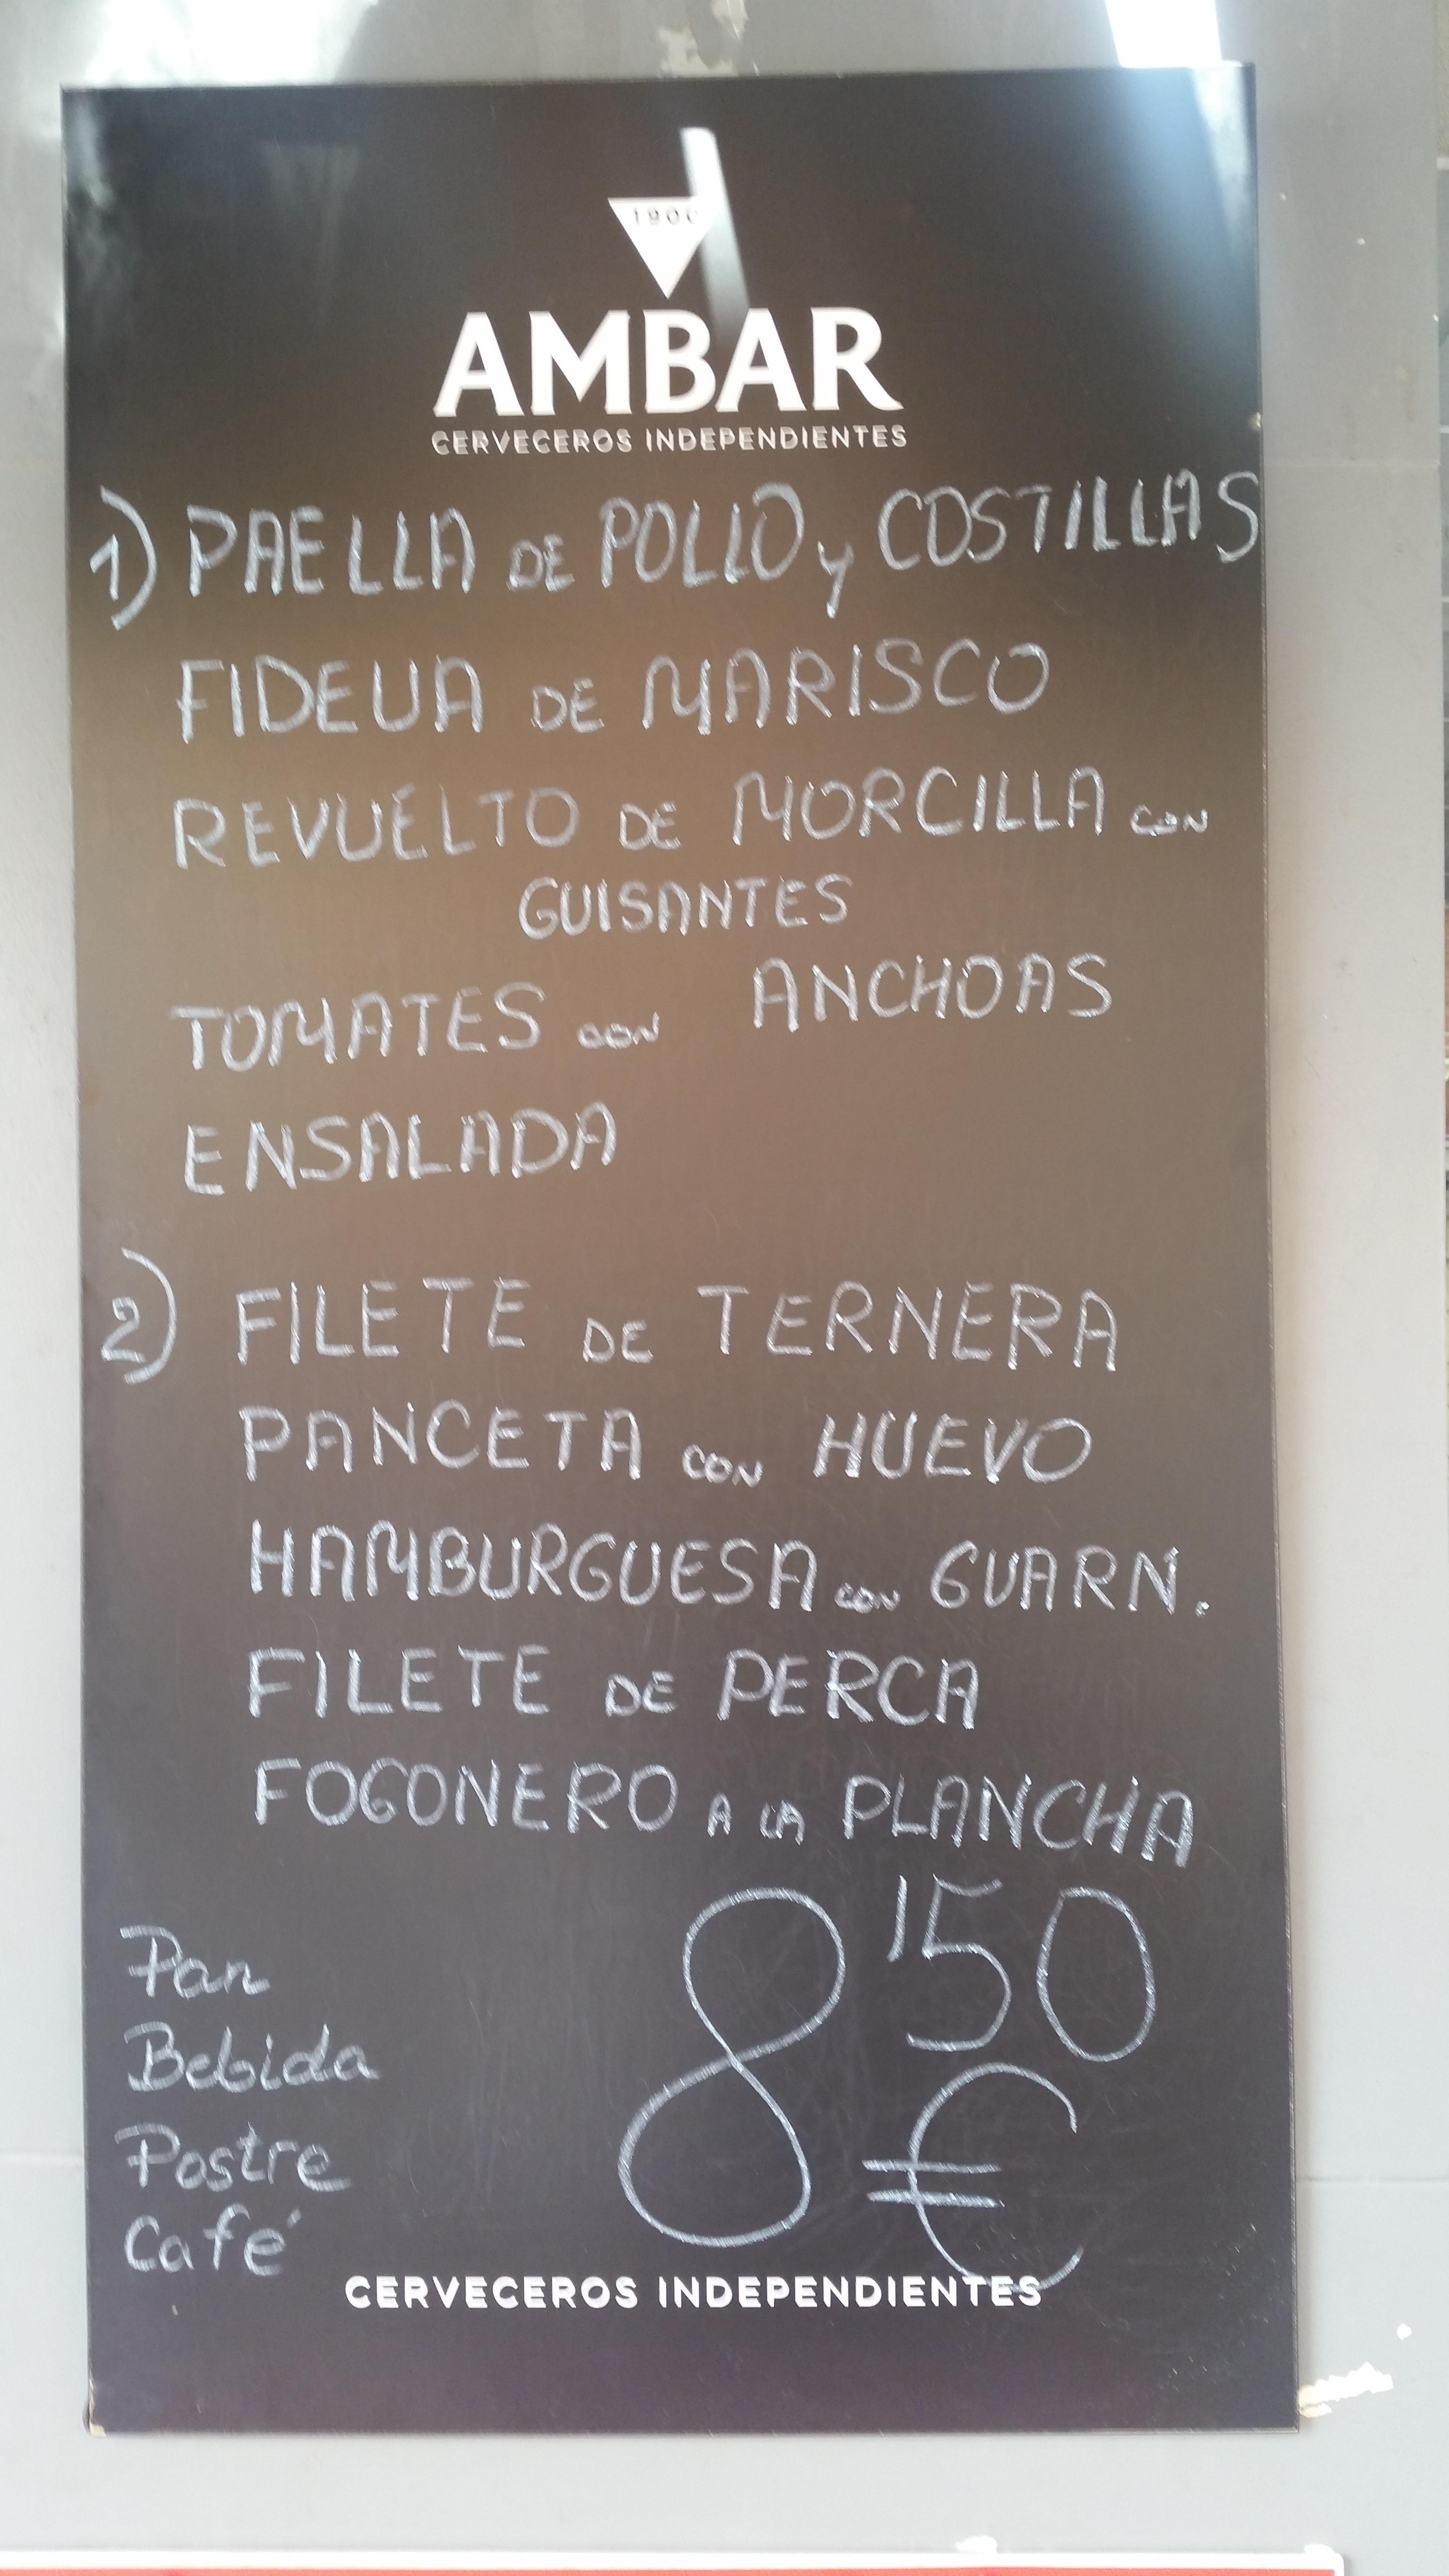 1900
AMBAR
CERVECEROS INDEPENDIENTES
1) PAELLA DE POLLO y COSTILLAS
FIDEUA DE MARISCO
REVUELTO DE MORCILLA CON
GUISANTES
TOMATES CON ANCHOAS
ENSALADA
2) FILETE DE TERNERA
PANCETA CON HUEVO
HAMBURGUESA CON GUARN.
FILETE DE PERCA
FOGONERO A LA PLANCHA
8'50
€
Pan
Bebida
Postre
Café
CERVECEROS INDEPENDIENTES